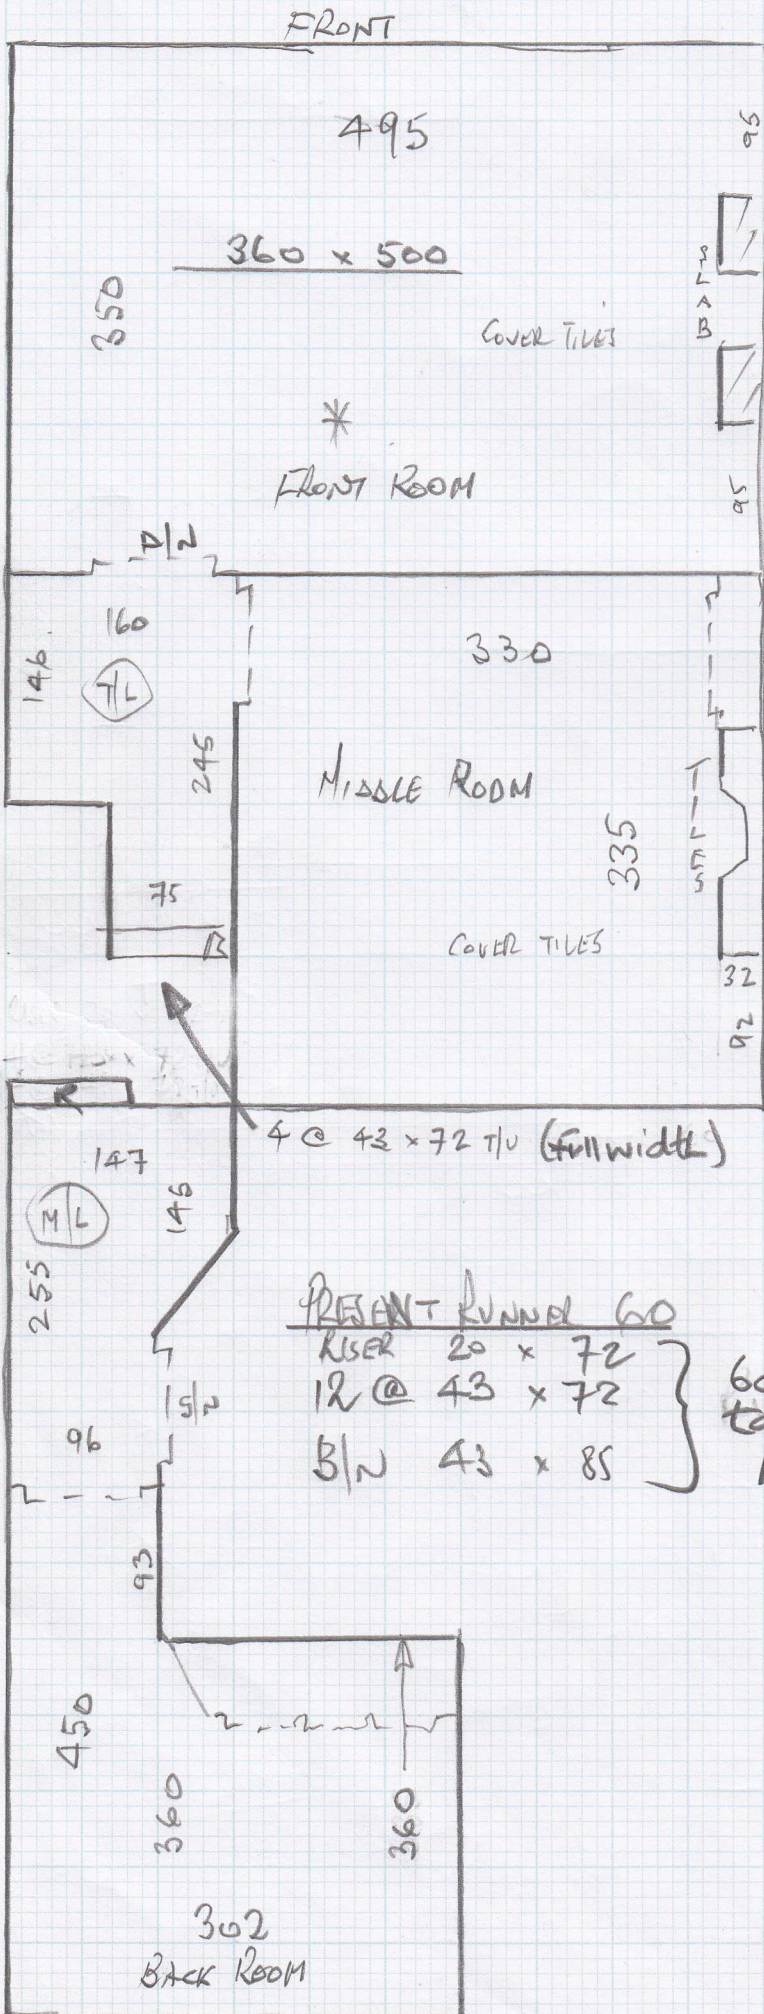 FRONT
495
95
360 x 500
SLAB
350
COVER TILES
FRONT ROOM
95
D/N
160
146
T/L
330
245
MIDDLE ROOM
335
TILES
75
B
COVER TILES
32
92
4 @ 43 x 72 T/U (Full width)
147
M/L
145
255
PRESENT RUNNER 60
RISER 20 x 72
12 @ 43 x 72
B/N 43 x 85
S/N
96
93
450
360
360
302
BACK ROOM